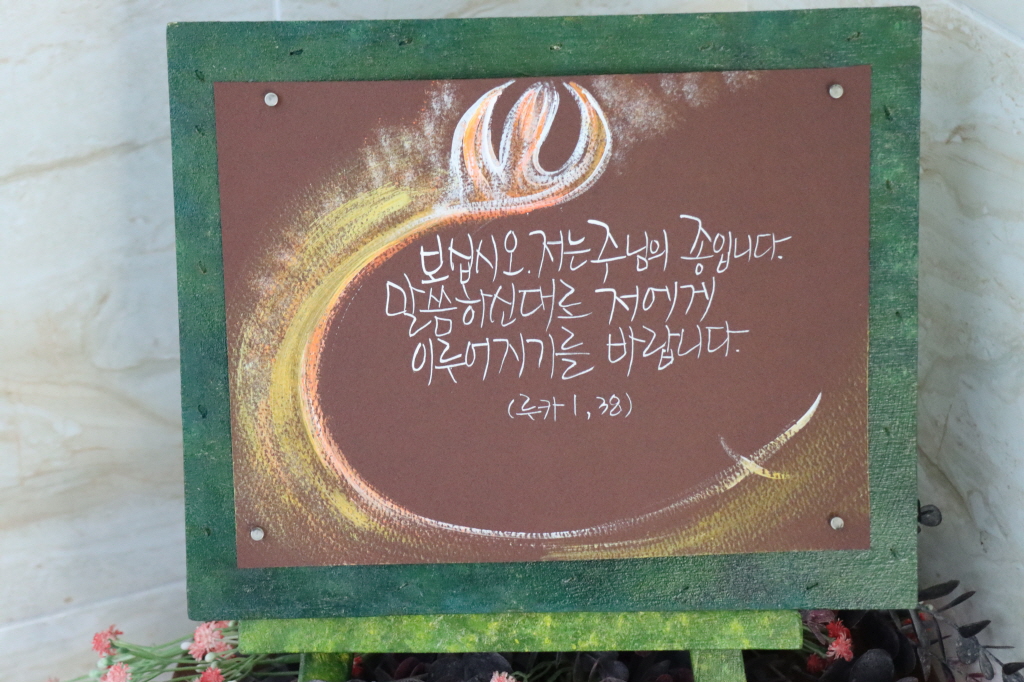 보십시오. 저는 주님의 종입니다.
말씀하신대로 저에게
이루어지기를 바랍니다.
(루카 1, 38)